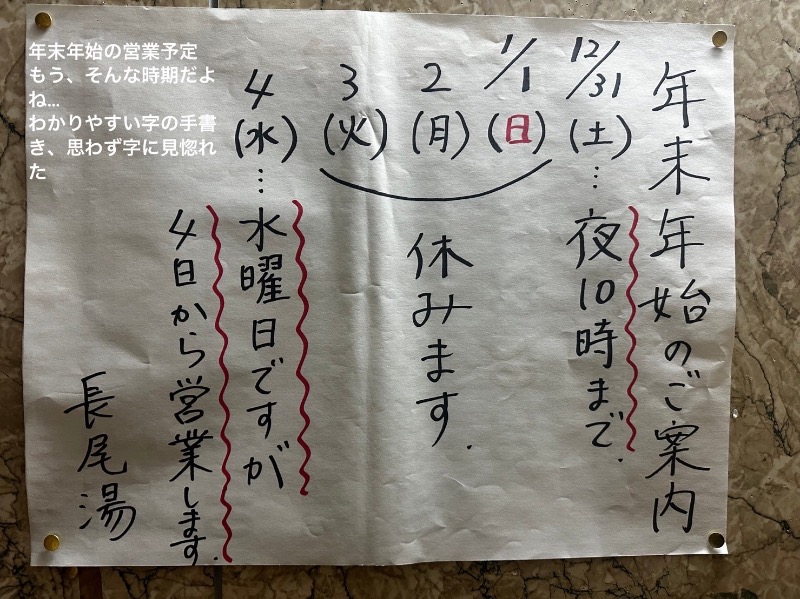 年末年始の営業予定
もう、そんな時期だよ
ね...
わかりやすい字の手書
き、思わず字に見惚れ
た
年末年始のご案内
12/31(土)…夜10時まで.
1/1(日)
2(月)
3(火)
休みます.
4(水)…水曜日ですが
4日から営業します.
長尾湯